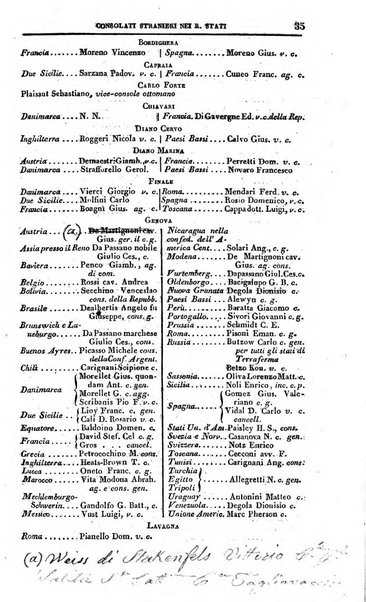 CONSOLATI STRANIERI NEI R. STATI 35
BORDIGHERA
Francia....... Moreno Vincenzo | Spagna...... Moreno Gius. v. c.
CAPRAIA
Due Sicilie.... Sarzana Padov. v. c. | Francia...... Cuneo Franc. ag. c.
CARLO FORTE
Plaisant Sebastiano, vice-console ottomano
CHIAVARI
Danimarca.... N. N. | Francia. Di Gavergne Ed. v.c. della Rep.
DIANO CERVO
Inghilterra.... Roggeri Nicola v. c. | Paesi Bassi.... Calvo Gius. v. c.
DIANO MARINA
Austria...... Demaestri Giamb. v. c. | Francia....... Perretti Dom. v. c.
Danimarca.... Strafforello Gerol. | Paesi Bassi.... Novaro Francesco
FINALE
Danimarca.... Vierci Giorgio v. c.
Due Sicilie.... Molfini Carlo
Francia...... Boagni Gius. ag. c.
Roma........ Mendari Ferd. v. c.
Spagna....... Rosio Domenico, v. c.
Toscana...... Cappelli Dom. v. c.
GENOVA
Austria... (a.) De Martignoni cav.
Gius. ger. il c. g.
Assia presso il Reno Da Passano nobile
Giulio Ces. v. c.
Baviera...... Penco Giamb., ag.
di com.
Belgio....... Rossi cav. Andrea
Bolivia....... Secchino Venceslao
cons. della Repubb.
Brasile....... Dealbertis Angelo fu
Giuseppe, cons.
v. c.
Brunswich e Lu-
neburgo..... Da Passano marchese
Giulio Ces., cons.
Buenos Ayres.. Picasso Michele cons.
della Conf. Argent.
Chilì........ Carignani Scipione c.
Danimarca { Morellet Gius. quon-
dam Ant. c. gen.
Morellet G. c. agg.
Scribanis Pio F. v. c.
Due Sicilie .. { Lioy Franc. c. gen.
Calì D. Rosario v. c.
Equatore..... Baldoino Domen. c.
Francia..... { David Stef. Cel c. g.
Gros ... cancell.
Grecia ...... Petrocochino M. cons.
Inghilterra.... Heats-Brown T. c.
Lucca ....... Oneto Franc. c. gen.
Marocco ..... Vita Modona Abrah.
ag. e cons. gen.
Mechlemburgo-
Schwerin.... Gandolfo G. Batt., c.
Messico...... Vust Luigi, v. c.
Nicaragua nella
confed. dell' A-
merica Cent... Solari Ang., c. g.
Modena...... De Martignoni cav.
Gius. ag. cons.
Vurtemberg.. Dapassano Giul. Ces. c.
Oldenborgo... Bacigalupo G. B. c.
Nuova Granata Degola Dionisio c.
Paesi Bassi ... Alewyn c. g.
Perù........ Baratta Giacomo c.
Portogallo.... Sivori Giovanni c. g.
Prussia...... Schmidt C. E.
Roma....... Pisoni Eman. c. g.
Russia....... Butzow Carlo c. gen.
per tutti gli stati di
Terraferma
Betzo Kon. v. c.
Sassonia..... Oliva Lorenzo Matt. c.
Sicilia....... Noli Enrico, inc. c. g.
Spagna..... { Gomez Gius. Vale-
riano c. g.
Vidal D. Carlo v. c.
cancell.
Stati Un. d'Am. Paisley H. S., cons.
Svezia e Norv.. Casanova N. c. gen.
Svizzera..... Notz Enrico
Toscana..... Cecconi avv. F.
Tunisi....... Carignani Ang. cons.
gen.
Turchia
Egitto
Tripoli } Allegretti N. c. gen.
Uraguay .... Antonini Matteo c.
Venezuola.... Degola Dionisio c.
Unione Americ. Marc Pherson c.
LAVAGNA
Roma........ Pianello Dom. v. c.
(a) Weiss di Stakenfels Vittorio